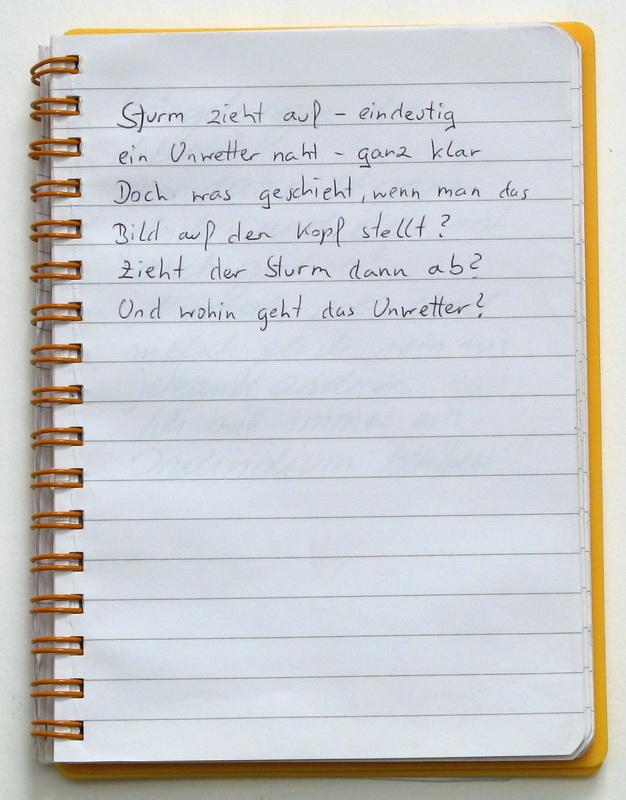 Sturm zieht auf - eindeutig
ein Unwetter naht - ganz klar
Doch was geschieht, wenn man das
Bild auf den Kopf stellt?
Zieht der Sturm dann ab?
Und wohin geht das Unwetter?